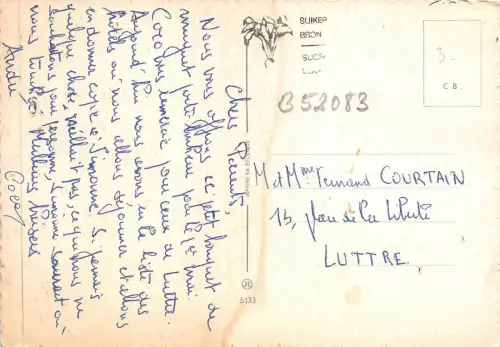 Chers Parents,
Nous vous offrons ce petit bouquet de
muguet porte bonheur pour le 1er mai.
Coco vous remercie pour ceux de Luttre.
Aujourd'hui nous avons eu la liste des
hôtels où nous allons déjeuner et allons
en donner copie à Simonne. Si jamais
quelque chose n'allait pas, ce que nous ne
souhaitons pour personne, Simonne saurait où
nous toucher. Meilleurs baisers
André
Coco
SUIKER
BRON
SUCR
3.-
C.B.
B52083
M et Mme Fernand COURTAIN
15, rue de la Liberté
LUTTRE.
JC
5133